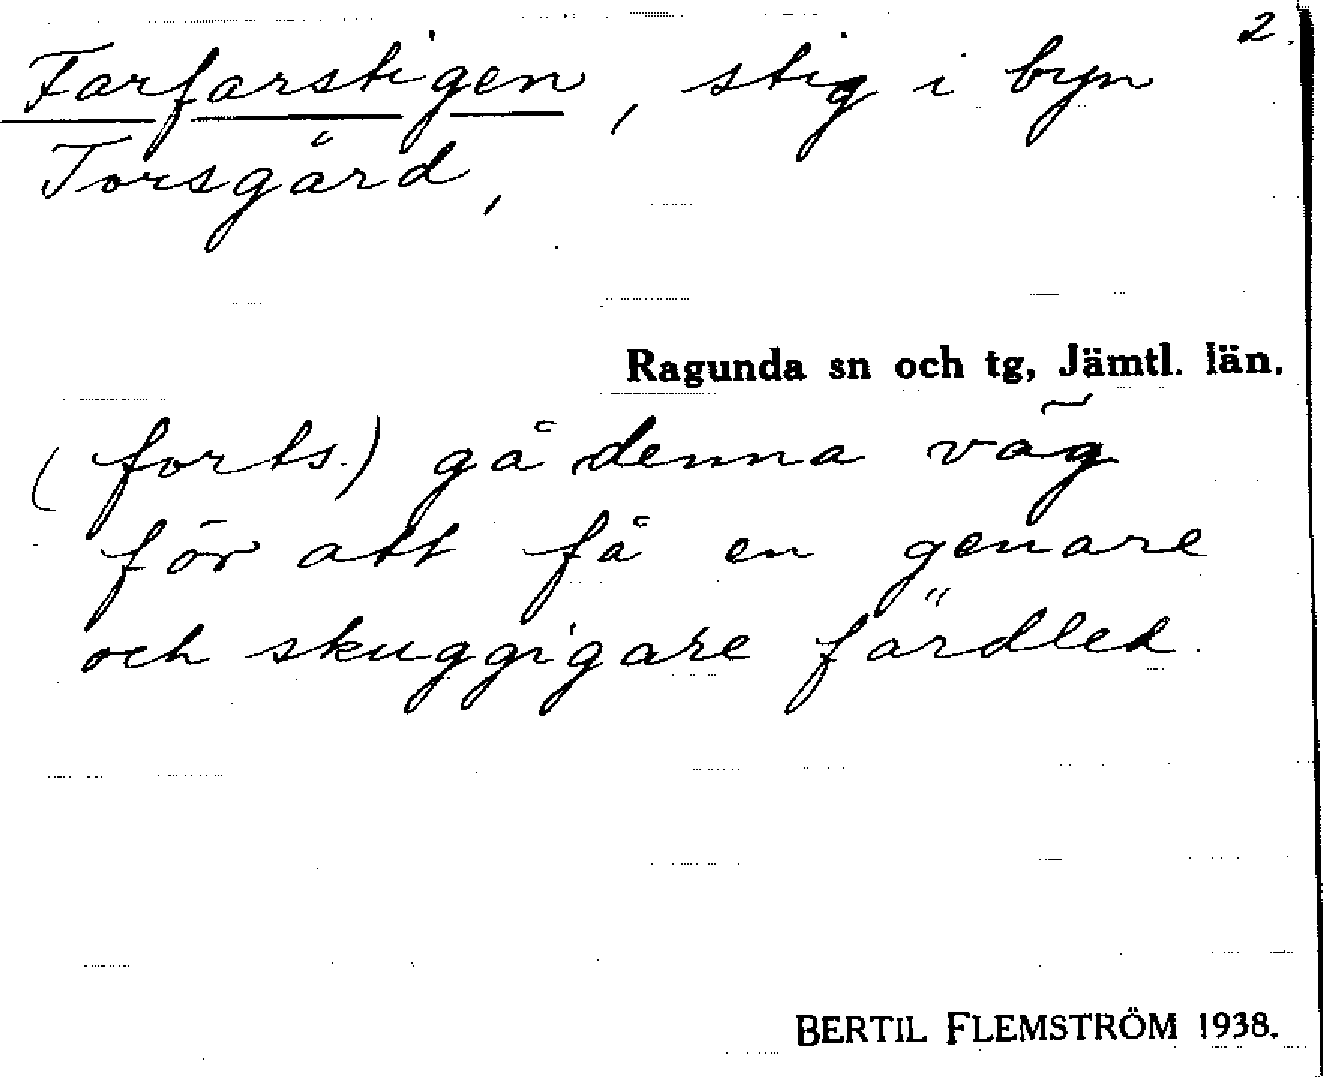 2.
Farfarstigen, stig i byn
Torsgård,
Ragunda sn och tg, Jämtl. län.
(forts.) gå denna väg
för att få en genare
och skuggigare färdled.
BERTIL FLEMSTRÖM 1938.